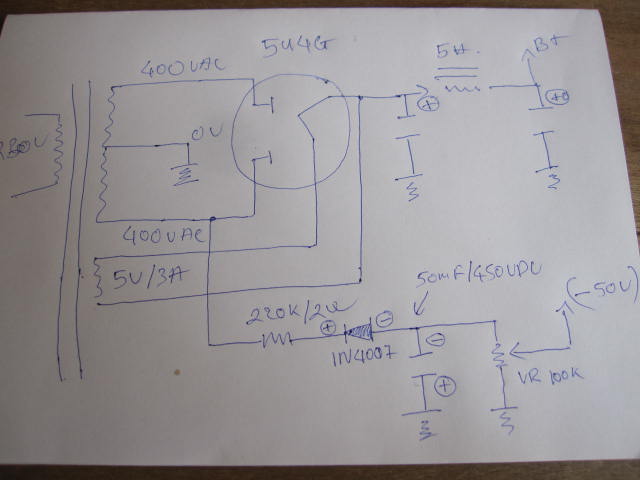 5U4G
400VAC
5H.
B+
+
+
0V
230V
400VAC
5V/3A
50mF/450VDC
(-50V)
220K/2W
+
-
1N4007
-
+
VR 100K